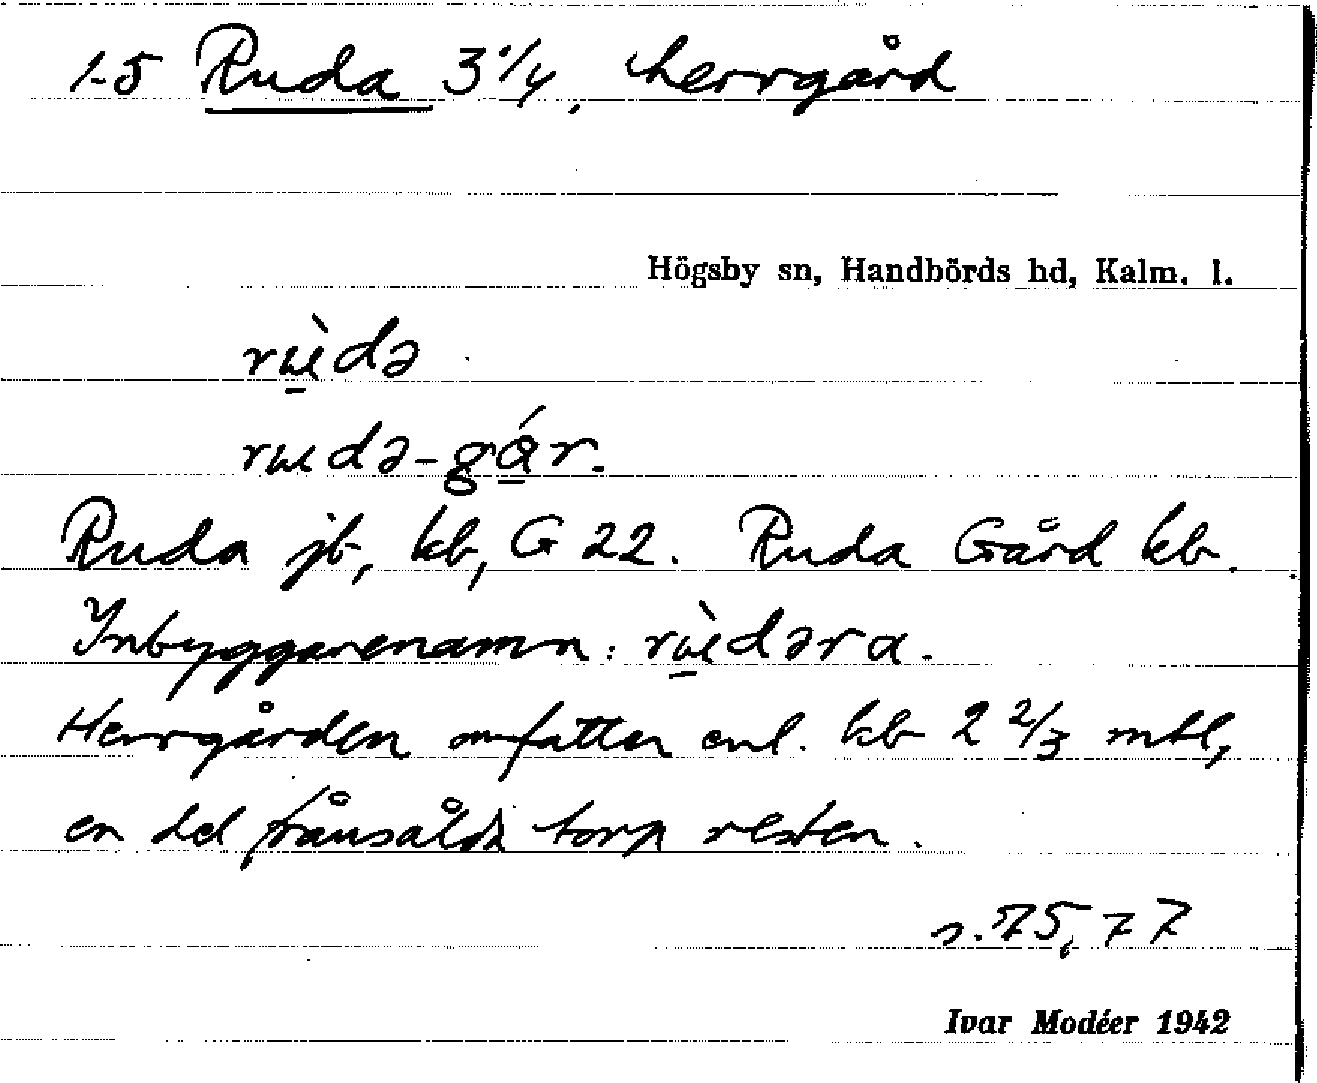 1-5 Ruda 3 1/4, herrgård
Högsby sn, Handbörds hd, Kalm. l.
rɯ̀də
rɯdə-gár.
Ruda jb, kb, G 22. Ruda Gård kb.
Inbyggarenamn: rɯ̀dəra.
Herrgården omfattar enl. kb 2 2/3 mtl,
en del frånsålda torp resten.
s. 75, 77
Ivar Modéer 1942